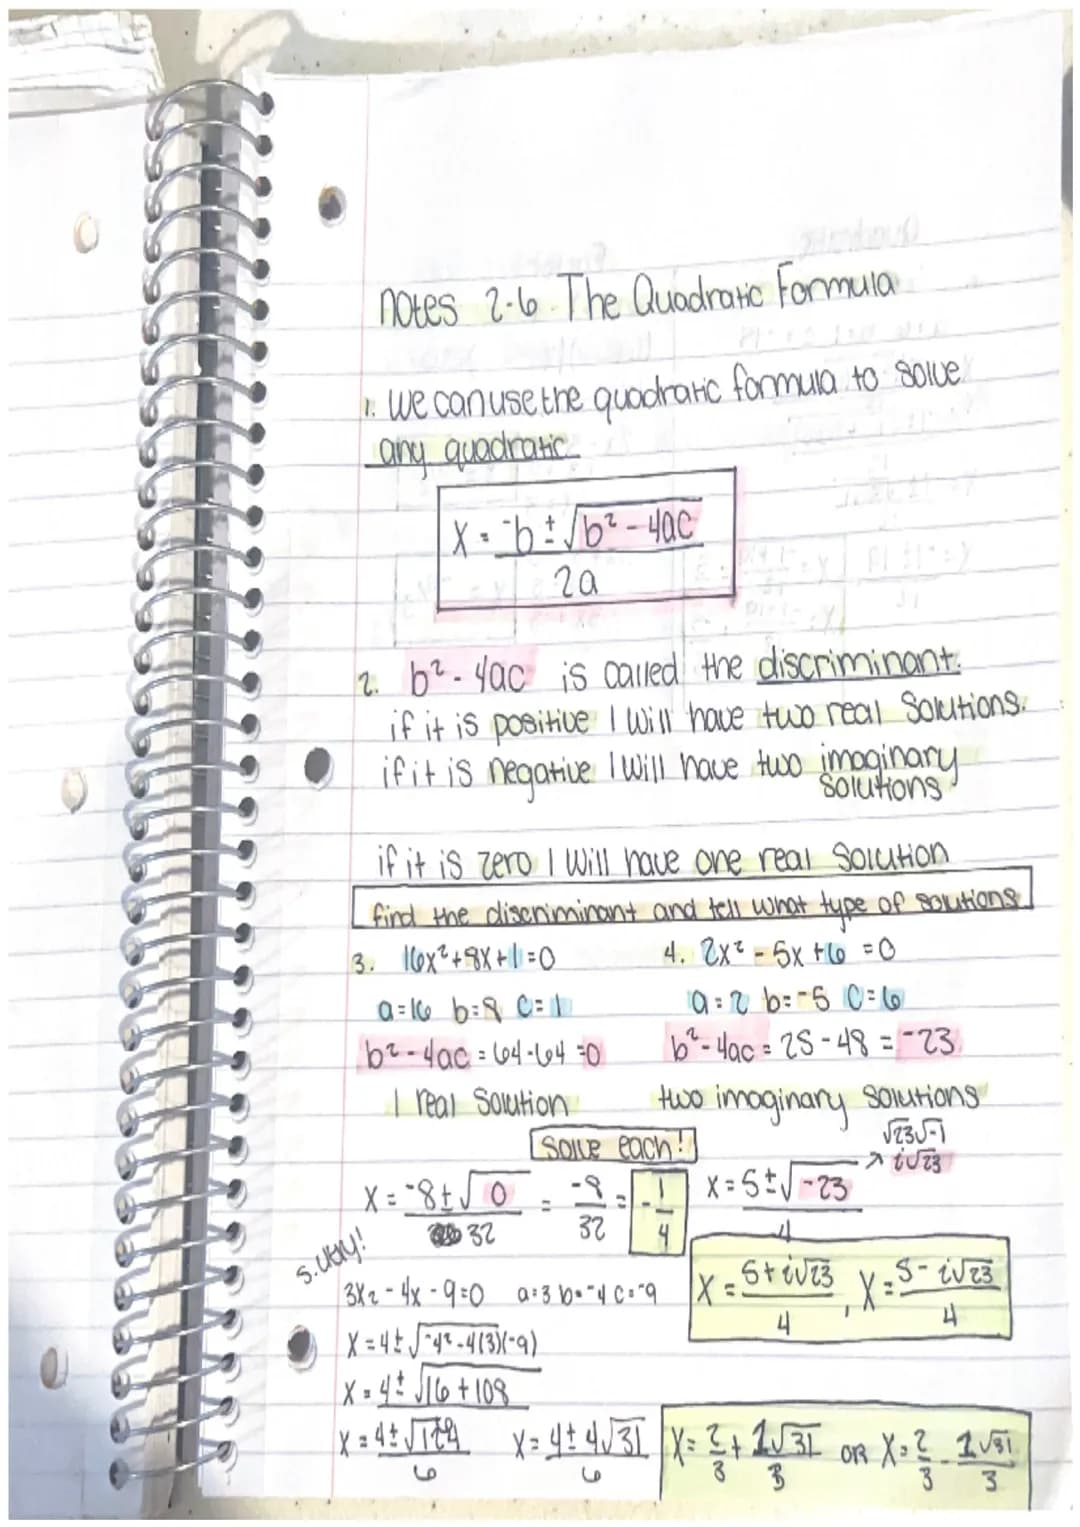 notes 2-6 The Quadratic Formula
1. We can use the quadratic formula to solve
any quadratic
x = -b ± √b² - 4ac
2a
2. b² - 4ac is called the discriminant.
if it is positive I will have two real solutions.
if it is negative I will have two imaginary
solutions
if it is zero I will have one real solution
find the discriminant and tell what type of solutions
3. 16x² + 8x + 1 = 0
a = 16 b = 8 c = 1
b² - 4ac = 64 - 64 = 0
1 real solution
4. 2x² - 5x + 6 = 0
a = 2 b = -5 c = 6
b² - 4ac = 25 - 48 = -23
two imaginary solutions
Solve each!
x = -8 ± √0 = -8 = -1
32 32 4
√23√-1
x = 5 ± √-23 → i√23
4
x = 5 + i√23 , x = 5 - i√23
4 4
5. u try!
3x2 - 4x - 9 = 0 a = 3 b = -4 c = -9
x = 4 ± √-4² - 4(3)(-9)
x = 4 ± √16 + 108
x = 4 ± √124 x = 4 ± 4√31
6 6
x = 2 + 1√31 OR x = 2 - 1√31
3 3 3 3